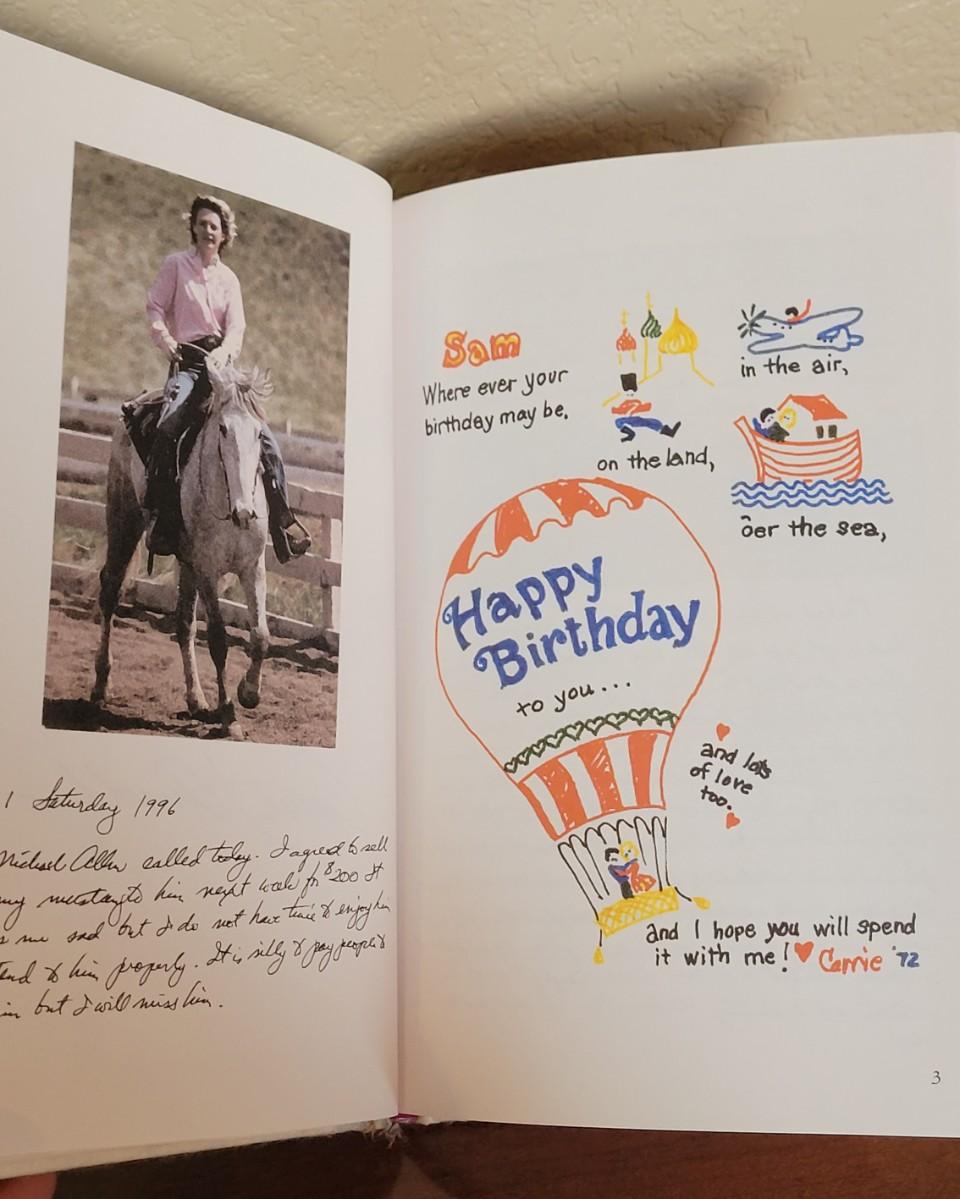 1 Saturday 1996
Michael Allen called today. I agreed to sell
my mustang to him next week for $200 It
s me sad but I do not have time to enjoy him
tend to him properly. It is silly to pay people to
im but I will miss him.
Sam
Where ever your
birthday may be.
on the land,
in the air,
o'er the sea,
Happy
Birthday
to you...
and lots
of love
too.
and I hope you will spend
it with me! Carrie '72
3